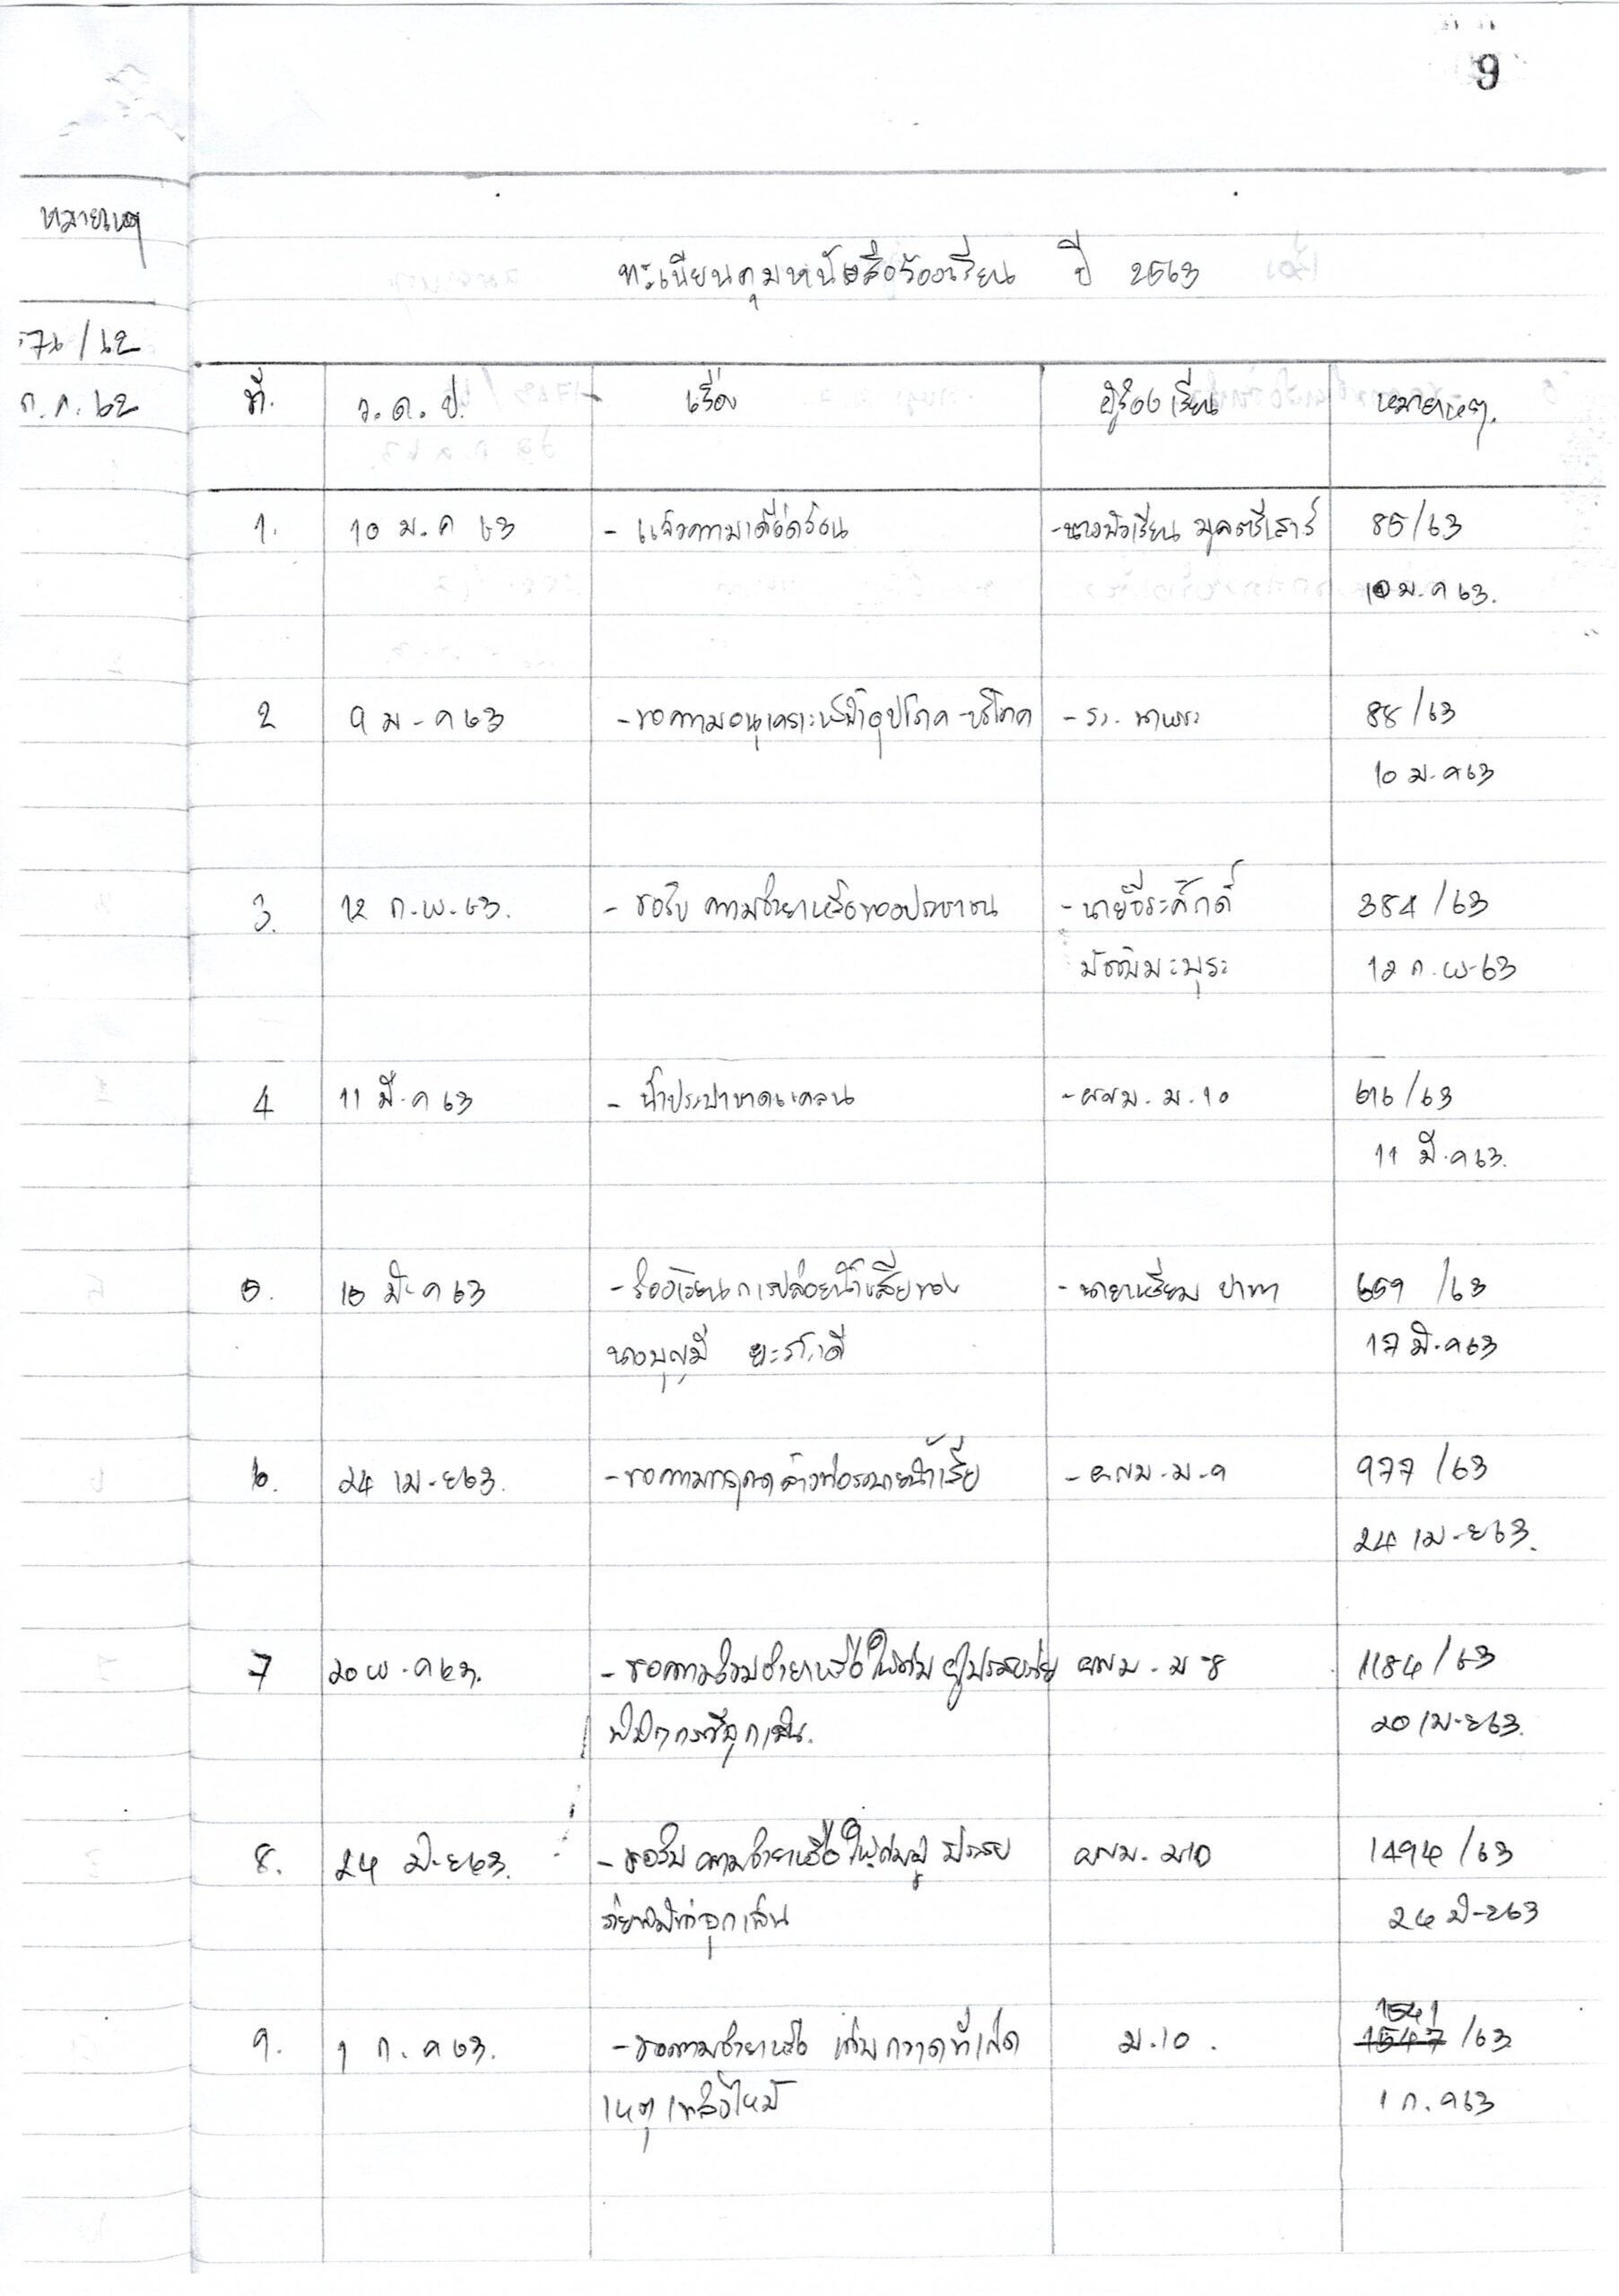 9
หมายเหตุ
ทะเบียนคุมหนังสือร้องเรียน ปี 2563
76/62
ก.ค.62
ที่. ว.ด.ป. เรื่อง ผู้ร้องเรียน หมายเหตุ.
1. 10 ม.ค 63 - แจ้งความเดือดร้อน -นางบัวเรียน มูลตรีเสาร์ 85/63
10 ม.ค 63.
2 9 ม-ค 63 -ขอความอนุเคราะห์น้ำอุปโภค-บริโภค - รร. 88/63
10 ม.ค 63
3. 12 ก.พ.63. - ขอรับ ความช่วยเหลือของประชาชน -นายจีระศักดิ์ 384/63
มัชฌิมะบุระ 12 ก.พ-63
4 11 มี.ค 63 - น้ำประปาขาดแคลน -ผญบ. ม.10 616/63
11 มี.ค 63.
5. 15 มี.ค 63 -ร้องเรียนการปล่อยน้ำเสียของ - นายเหรียม 659 /63
นางบุญมี 17 มี.ค 63
6. 24 เม-ย63. -ขอความ ล้างท่อระบายน้ำเสีย -ผญบ.ม.9 977 /63
24 เม-ย63.
7 20 พ.ค 63. -ขอความร่วมช่วยเหลือ ให้กับ ผู้ประสบภัย ผญบ.ม-8 1184/63
พิบัติกรณีฉุกเฉิน. 20 เม-ย63.
8. 24 มิ-ย63. -ขอรับ ความช่วยเหลือ ให้กับผู้ ประสบ ผญบ. ม10 1494/63
ภัยพิบัติฉุกเฉิน 24 มิ-ย63
1541
9. 1 ก.ค 63. -ขอความช่วยเหลือ เก็บกวาดที่เกิด ม.10. 1547 /63
เหตุเพลิงไหม้ 1 ก.ค63